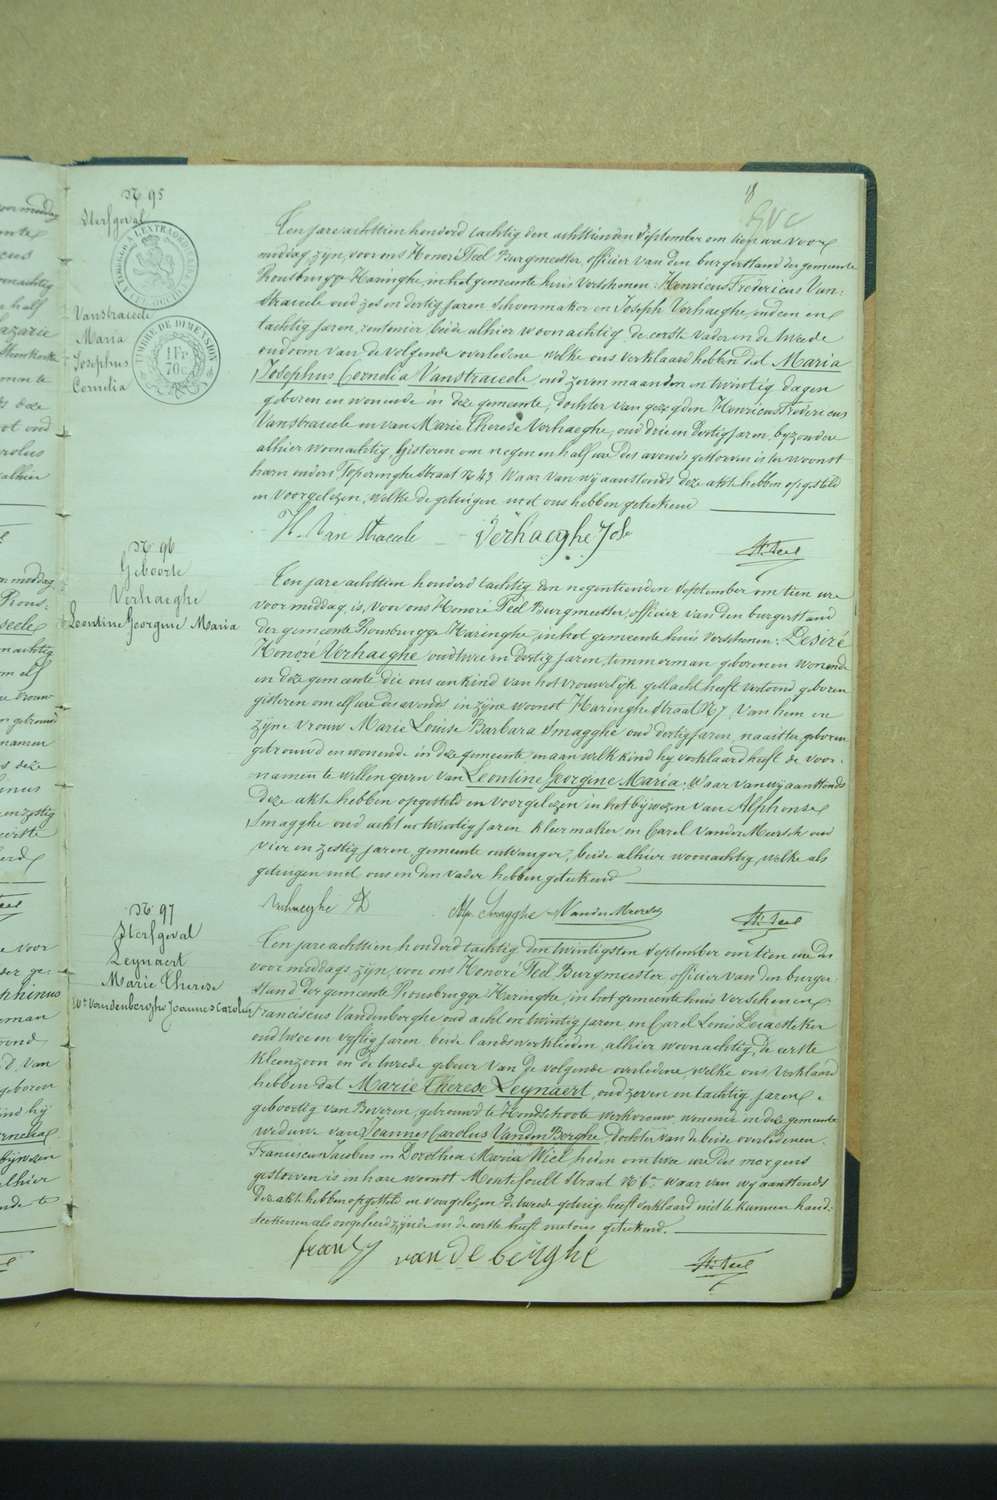 18
N° 95
Sterfgeval
Vanstraceele
Maria
Josephus
Cornelia
TIMBRE DE DIMENSION
1 Fr
70 c
Ten jare achttien honderd tachtig den achttienden September om tien ure voor
middag zijn, voor ons Honoré Feel Burgmeester, officier van den burgerstand der gemeente
Rousbrugge Haringhe, in het gemeente huis verschenen: Henricus Fredericus Van-
straceele oud zes en dertig jaren schoenmaker en Joseph Verhaeghe, oud een en
tachtig jaren, rentenier beide alhier woonachtig, de eerste vader en de tweede
oudoom van de volgende overledene welke ons verklaard hebben dat Maria
Josephus Cornelia Vanstraceele oud zeven maanden en twintig dagen
geboren en wonende in deze gemeente, dochter van gezegden Henricus Fredericus
Vanstraceele en van Marie Therese Verhaeghe, oud drie en dertig jaren, byzondere
alhier woonachtig, gisteren om negen en half ure des avonds gestorven is ter woonst
harer ouders Poperinghe straat N° 43 Waar van wij aanstonds deze akte hebben opgesteld
en voorgelezen, welke de getuigen met ons hebben geteekend
H. Van Straceele Verhaeghe Js
H. Feel
N° 96
Geboorte
Verhaeghe
Leontine Georgine Maria
Ten jare achttien honderd tachtig den negentienden September om tien ure
voor middag, is, voor ons Honoré Feel Burgmeester, officier van den burgerstand
der gemeente Rousbrugge Haringhe, in het gemeente huis verschenen: Desiré
Honoré Verhaeghe oud twee en dertig jaren, timmerman geboren en wonende
in deze gemeente die ons een kind van het vrouwelijk geslacht heeft vertoond, geboren
gisteren om elf ure des avonds in zijne woonst Haringhe straat N° 7 van hem en
zijne vrouw Marie Louise Barbara Smagghe oud dertig jaren, naaister, geboren
getrouwd en wonende in deze gemeente, en aan welk kind hij verklaard heeft de voor-
namen te willen geven van Leontine Georgine Maria. Waar van wij aanstonds
deze akte hebben opgesteld en voorgelezen in het bijwezen van Alphonse
Smagghe oud acht en twintig jaren kleermaker en Carel Vander Meersch oud
vier en zestig jaren, gemeente ontvanger, beide alhier woonachtig, welke als
getuigen met ons en den vader hebben geteekend
Verhaeghe D Alp. Smagghe Vander Meersch
H. Feel
N° 97
Sterfgeval
Leynaert
Marie Therese
We Vandenberghe Joannes Carolus
Ten jare achttien honderd tachtig den twintigsten September om tien ure des
voor middags zijn, voor ons Honoré Feel Burgmeester officier van den burger
stand der gemeente Rousbrugge Haringhe, in het gemeente huis verschenen
Franciscus Vandenberghe oud acht en twintig jaren, en Carel Louis
oud twee en vijftig jaren beide landswerklieden, alhier woonachtig, de eerste
kleinzoon en de tweede gebuur van de volgende overledene, welke ons verklaard
hebben dat Marie Therese Leynaert, oud zeven en tachtig jaren
geboortig van Beveren, getrouwd te Hondschoote werkvrouw, wonende in deze gemeente
weduwe van Joannes Carolus Vanden Berghe, dochter van de beide overledenen
Franciscus Jacobus en Dorothea Maria Wiel, heden om twee ure des morgens
gestorven is in hare woonst straat N° 6. waar van wij aanstonds
deze akte hebben opgesteld en voorgelezen de tweede getuige heeft verklaard niet te kunnen hand-
teekenen als ongeleerd zijnde en de eerste heeft met ons geteekend.
van de berghe
H. Feel